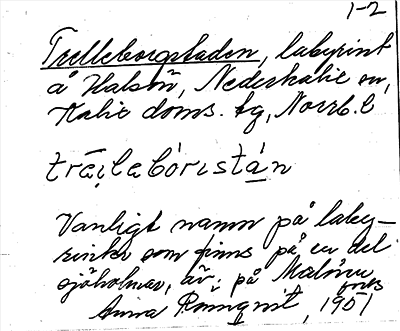 1-2
Trelleborgstaden, labyrint
å Halsön, Nederkalix sn,
Kalix doms. tg, Norrb. l
träilabóristán
Vanligt namn på laby-
rinter som finns på en del
sjöholmar, äv. på Malören
Anna Rönnqvist, 1951